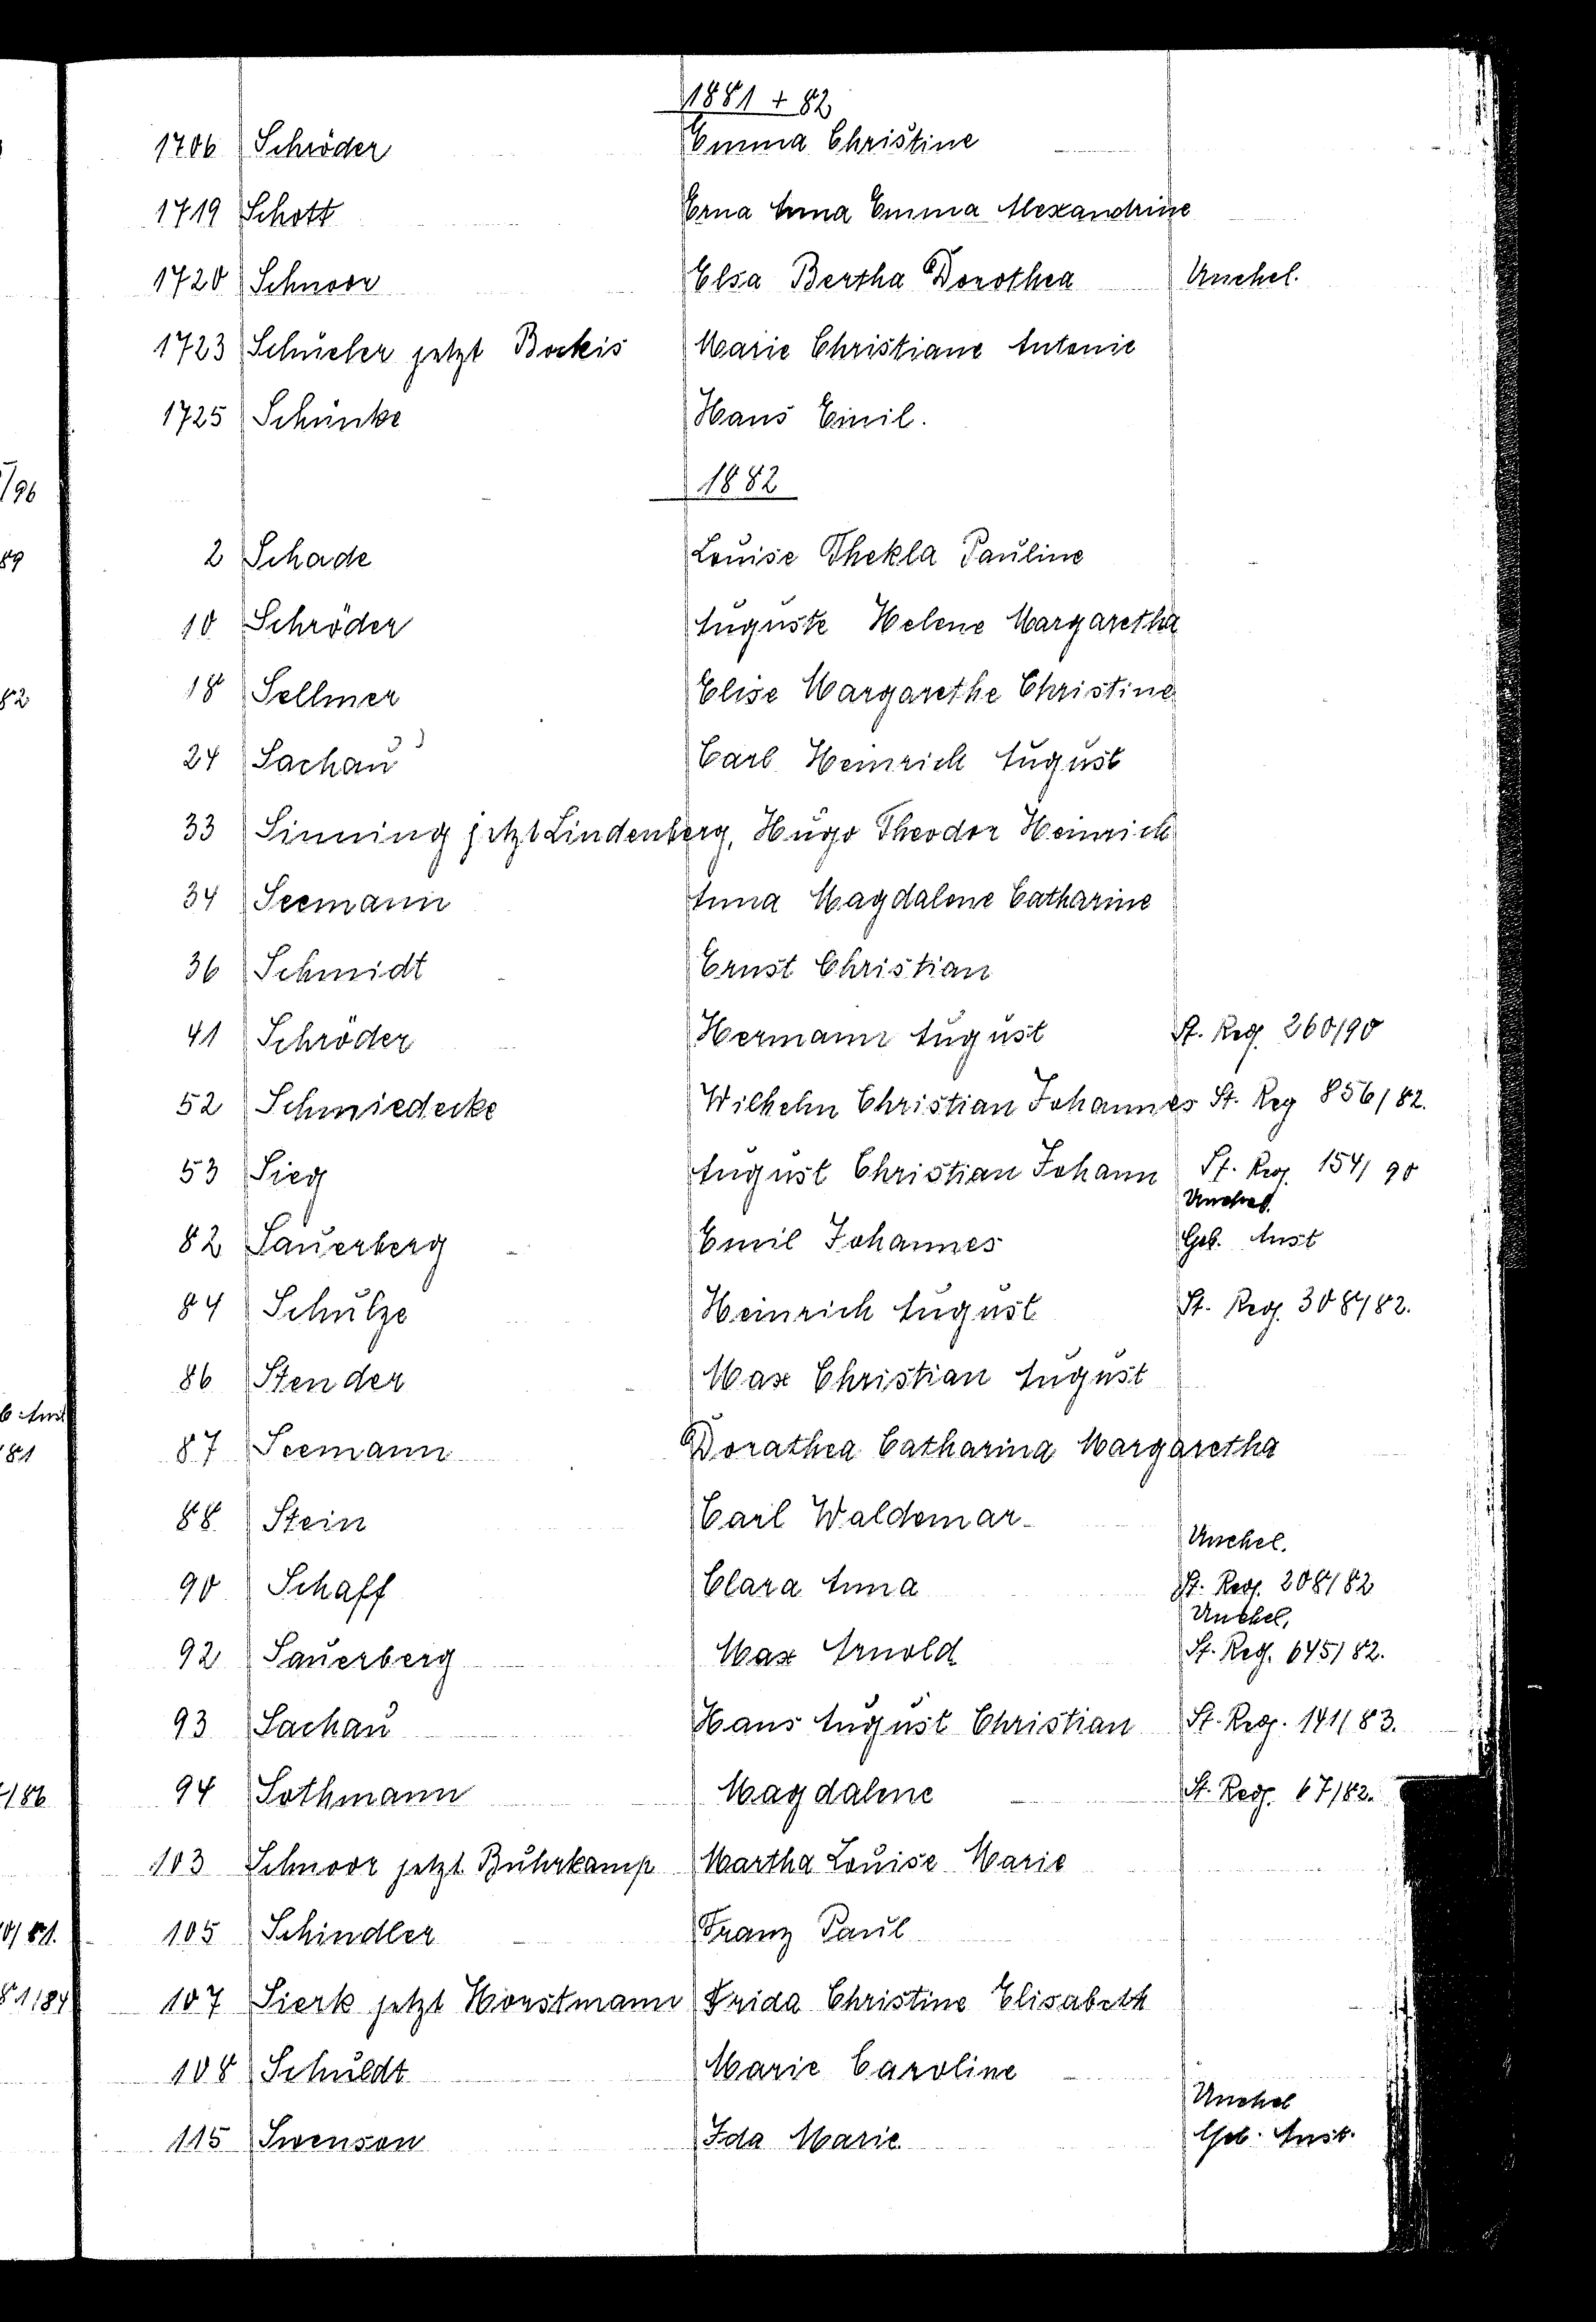 1881 + 82
1706 Schröder Emma Christine
1719 Schott Erna Anna Emma Alexandrine
1720 Schnoor Elsa Bertha Dorothea Unehel.
1723 Schüeler jetzt Bockis Marie Christiane Antonie
1725 Schünke Hans Emil.
1882
/96
89 2 Schade Louise Thekla Pauline
10 Schröder Auguste Helene Margaretha
82 18 Sellmer Elise Margarethe Christine
24 Sachau Carl Heinrich August
33 Sinning jetzt Lindenberg, Hugo Theodor Heinrich
34 Seemann Anna Magdalene Catharine
36 Schmidt Ernst Christian
41 Schröder Hermann August St. Reg. 260/90
52 Schmiedecke Wilhelm Christian Johannes St. Reg 856/82.
53 Sieg August Christian Johann St. Reg. 154/90
Unehel.
82 Sauerberg Emil Johannes Geb. Anst
84 Schulze Heinrich August St. Reg. 308/82.
86 Stender Max Christian August
81 87 Seemann Dorathea Catharina Margaretha
88 Stein Carl Waldemar
Unehel.
90 Schaff Clara Anna St. Reg. 208/82
Unehel.
92 Sauerberg Max Arnold St. Reg. 645/82.
93 Sachau Hans August Christian St. Reg. 141/83.
/86 94 Sothmann Magdalene St. Reg. 67/82.
103 Schnoor jetzt Buhrkamp Martha Louise Marie
/81. 105 Schindler Franz Paul
81/84 107 Sierk jetzt Horstmann Frida Christine Elisabeth
108 Schuldt Marie Caroline
Unehel
115 Swenson Ida Marie Geb. Anst.